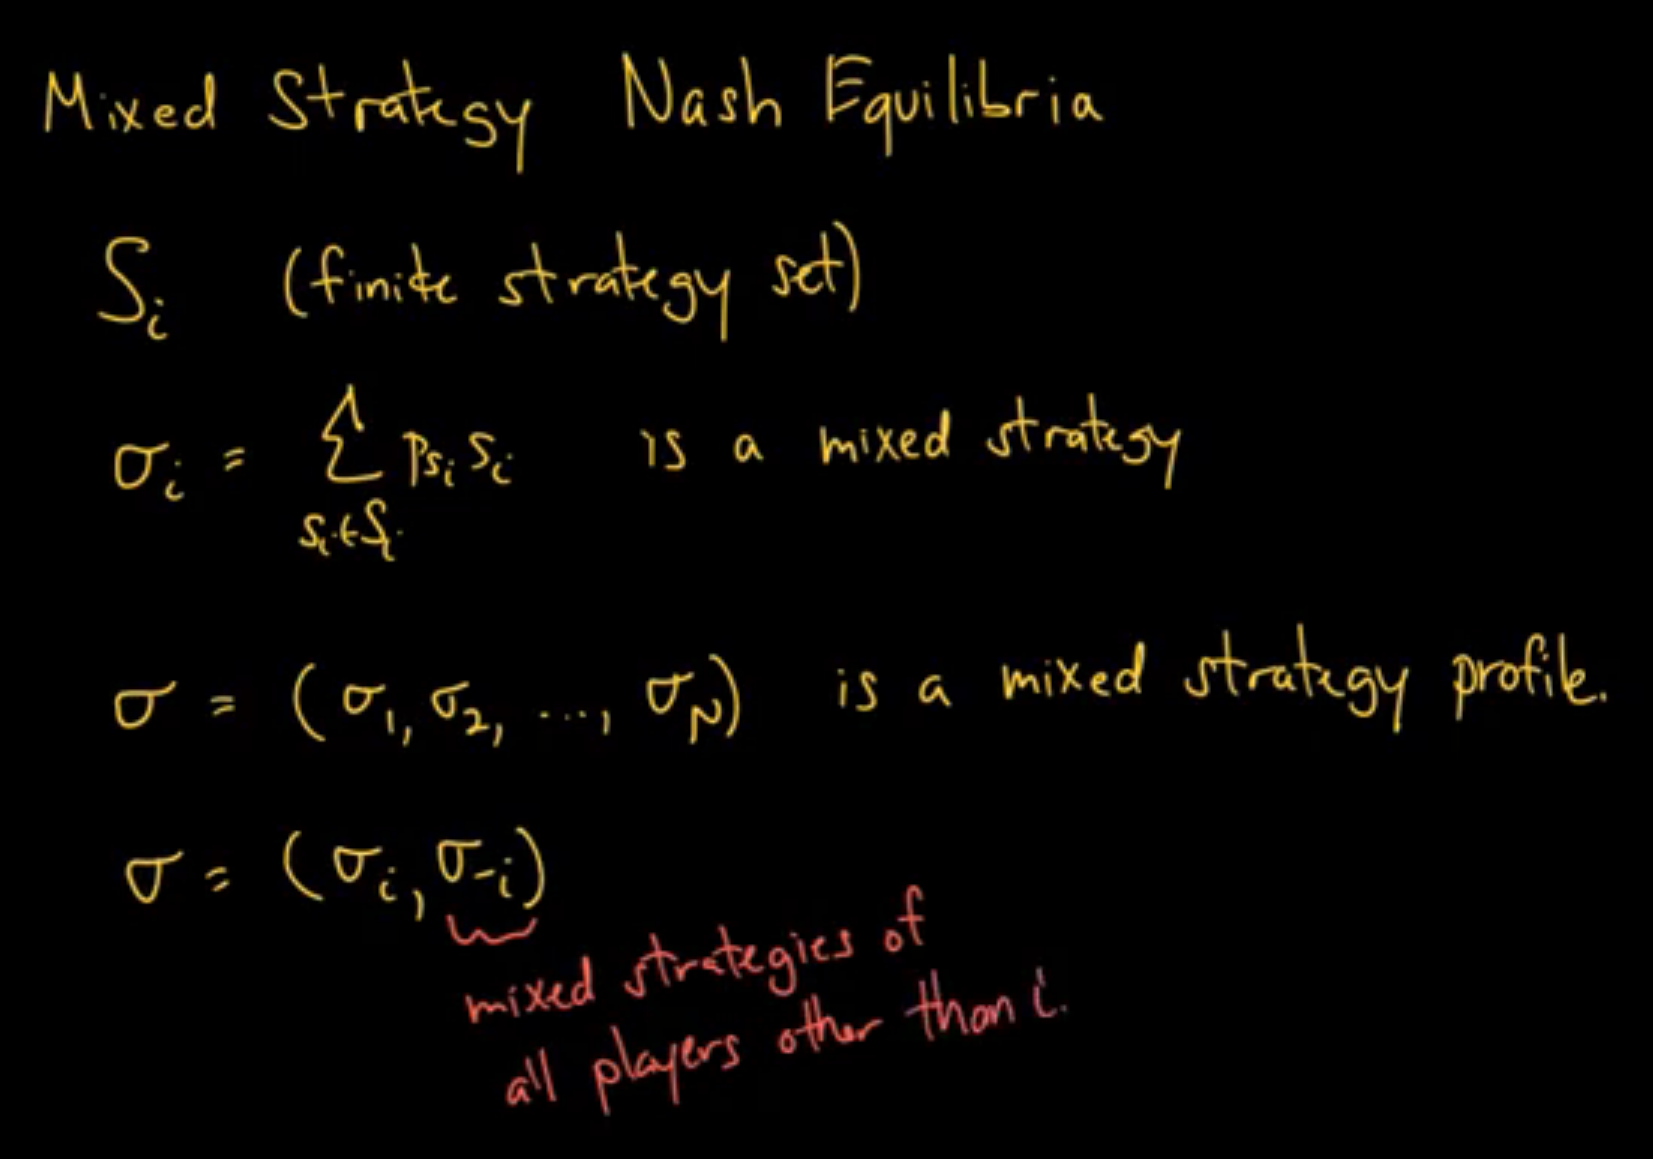 Mixed Strategy Nash Equilibria
Sᵢ (finite strategy set)
σᵢ = Σ p_{sᵢ} sᵢ is a mixed strategy
sᵢ∈Sᵢ
σ = (σ₁, σ₂, ..., σ_N) is a mixed strategy profile.
σ = (σᵢ, σ₋ᵢ)
mixed strategies of
all players other than i.